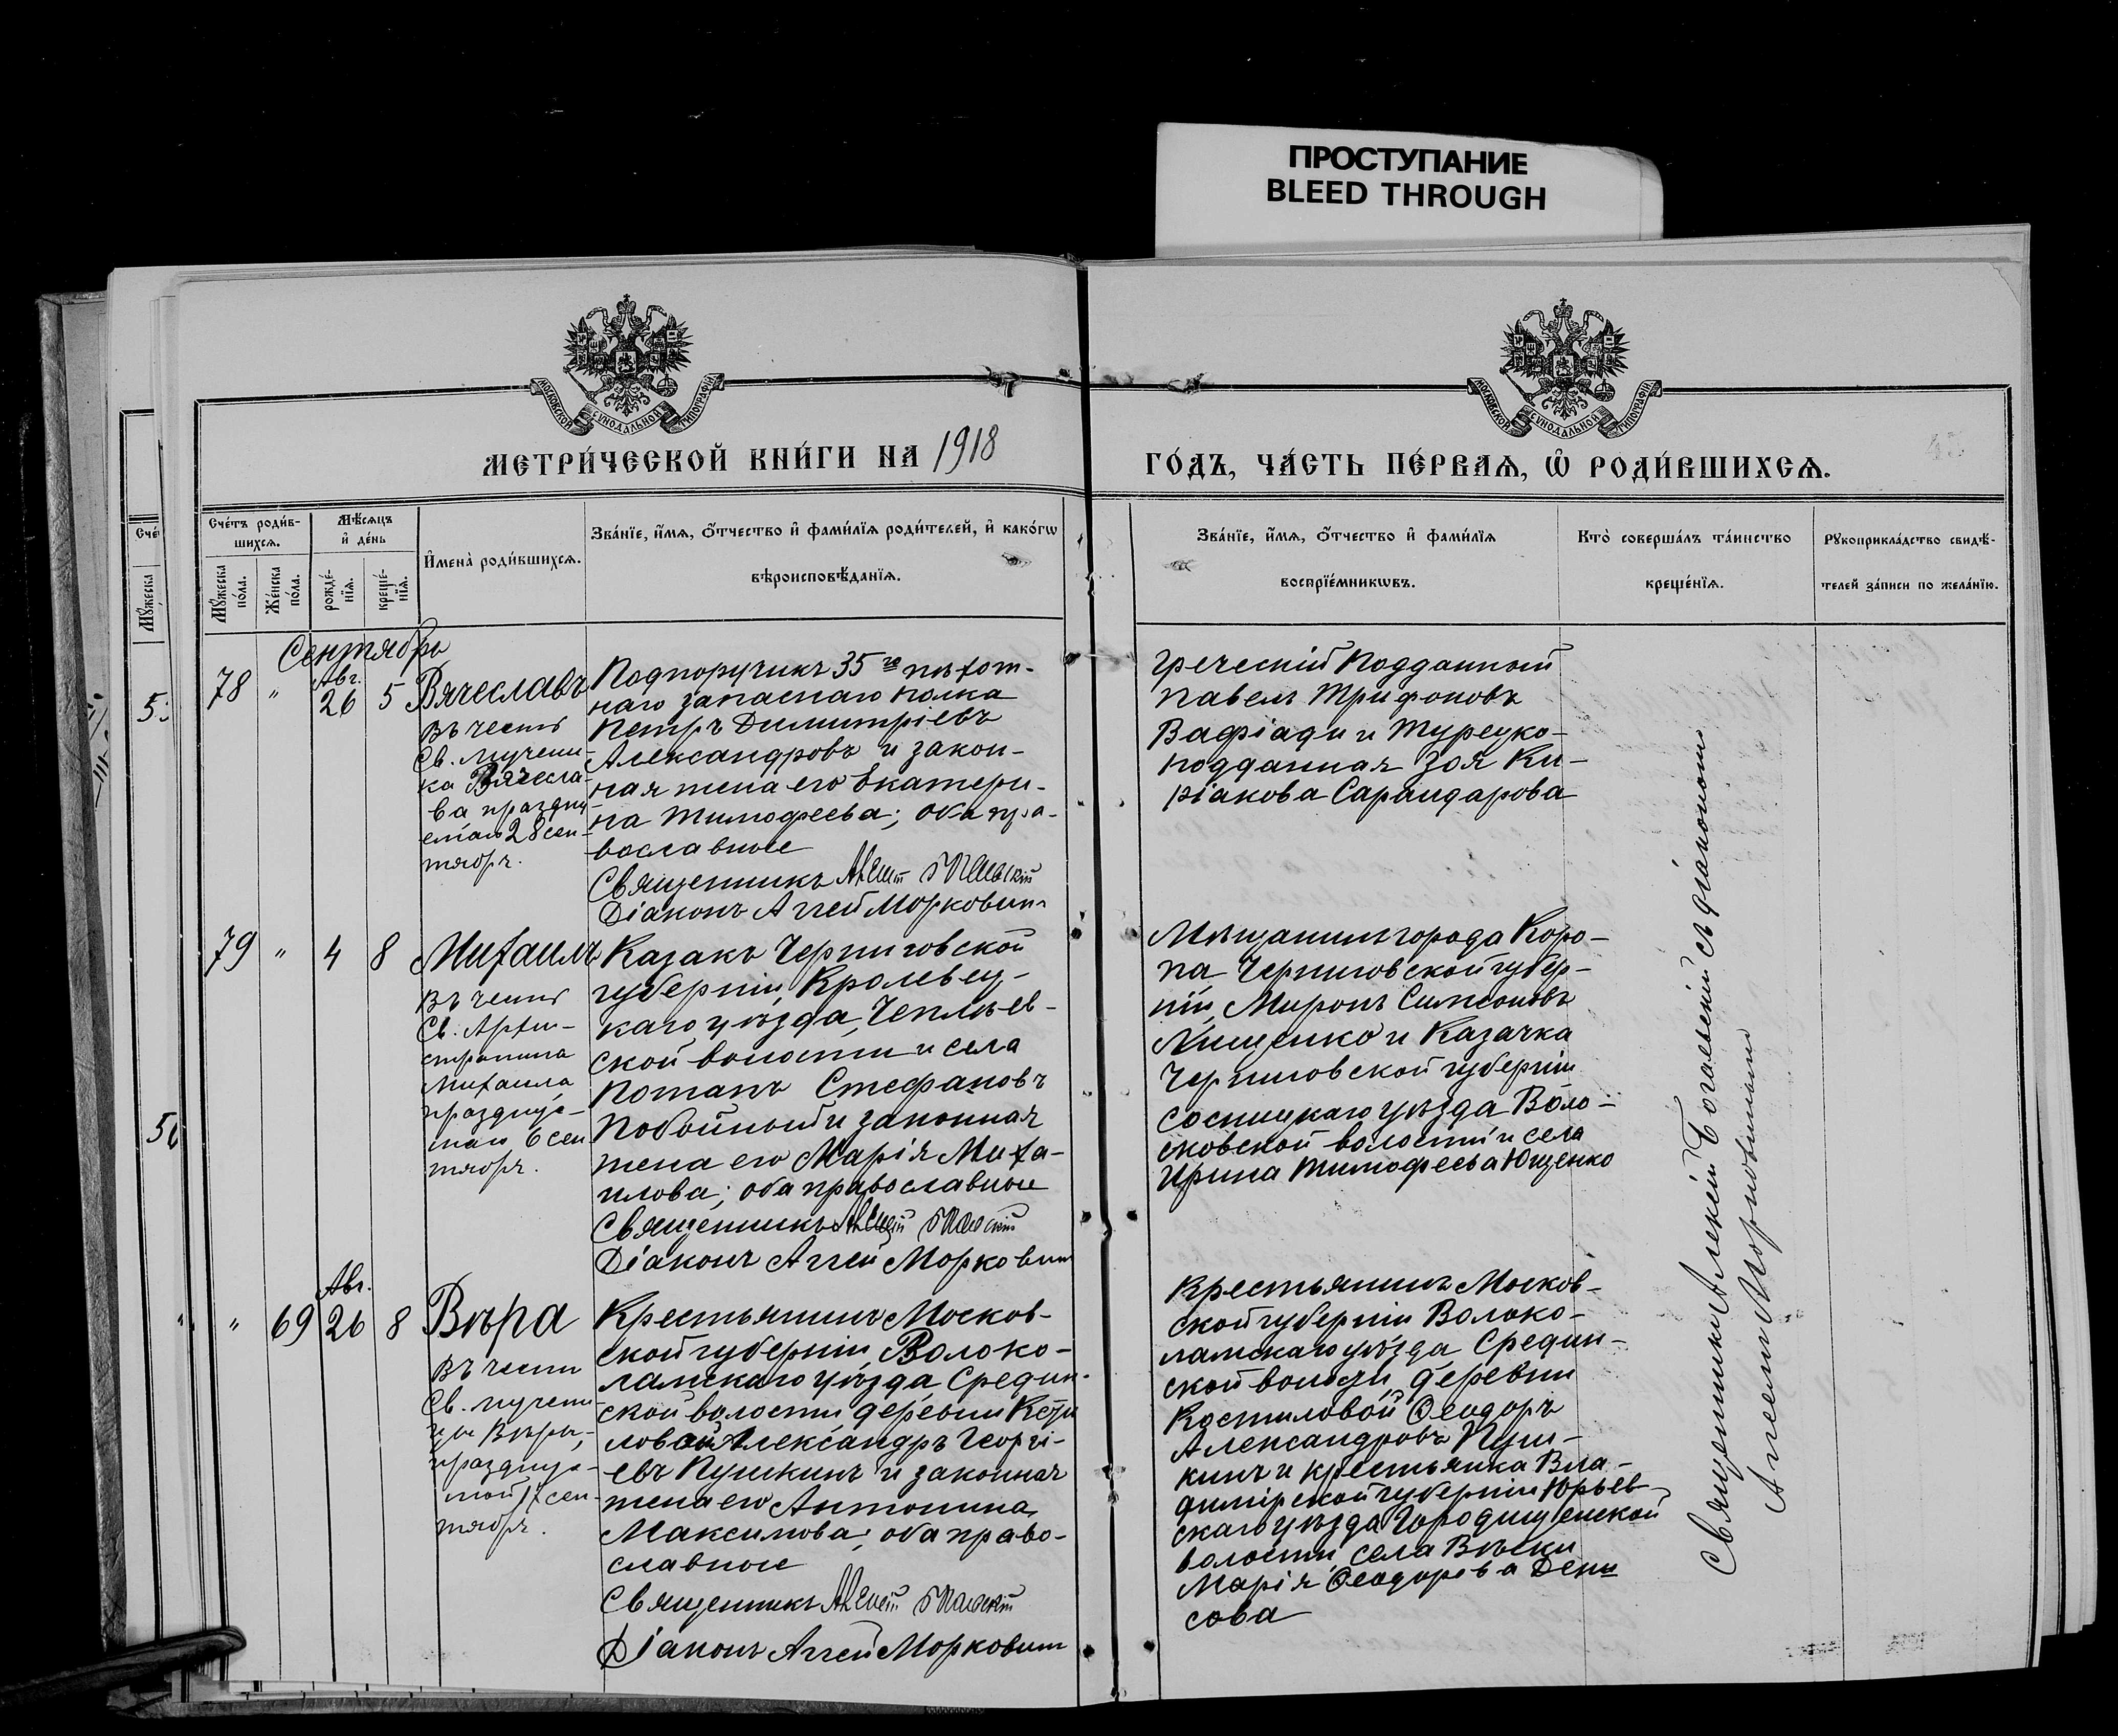 ПРОСТУПАНИЕ
BLEED THROUGH
МОСКОВСКОЙ СѴНОДАЛЬНОЙ ТИПОГРАФІИ
МОСКОВСКОЙ СѴНОДАЛЬНОЙ ТИПОГРАФІИ
МЕТРИ́ЧЕСКОЙ КНИ́ГИ НА 1918
ГО́ДЪ, ЧА́СТЬ ПЕ́РВАѦ, Ѽ РОДИ́ВШИХСѦ.
45
Сче́тъ роди́в-
шихсѧ.
Мꙋ́жеска по́ла.
Же́нска по́ла.
Мѣ́сѧцъ
и҆ де́нь
рожде́-
нїѧ.
креще́-
нїѧ.
И҆мена̀ роди́вшихсѧ.
Зва́нїе, и҆́мѧ, ѻ҆́тчество и҆ фами́лїѧ роди́телей, и҆ како́гѡ
вѣроисповѣ́данїѧ.
Зва́нїе, и҆́мѧ, ѻ҆́тчество и҆ фами́лїѧ
воспрїе́мникѡвъ.
Кто̀ соверша́лъ та́инство
креще́нїѧ.
Рꙋкоприкла́дство свидѣ́-
телей за́писи по жела́нїю.
Сентябрь
78 " Авг. 26 5 Вячеславъ
Въ честь
Св. мучени-
ка Вячесла-
ва праздну
емаго 28 сен-
тября.
Подпоручикъ 35го пѣхот-
наго запаснаго полка
Петръ Димитріевъ
Александровъ и закон-
ная жена его Екатери-
на Тимофеева; оба пра-
вославные
Священникъ
Діаконъ Аггей Морковинъ
Греческій подданный
Павелъ Трифоновъ
Вафіади и Турецко-
подданная Зоя Ки-
ріакова Сарандарова
79 " 4 8 Михаилъ
Въ честь
Св. Архи-
стратига
Михаила
праздну-
маго 6 сен
тября.
Казакъ Черниговской
губерніи, Кролевец-
каго уѣзда, Чеплѣев-
ской волости и села
Потапъ Стефановъ
Побойный и законная
жена его Марія Миха-
илова; оба православные
Священникъ
Діаконъ Аггей Морковинъ
Мѣщанинъ города Коро-
па, Черниговской губер-
ніи, Миронъ Симоновъ
Лищенко и Казачка
Черниговской губерніи
Сосницкаго уѣзда Воло-
сковской волости и села
Ирина Тимофеева Ющенко
" 69 Авг. 26 8 Вѣра
Въ честь
Св. мучени
цы Вѣры,
праздну-
мой 17 сен-
тября.
Крестьянинъ Москов-
ской губерніи, Волоко-
ламскаго уѣзда, Средин-
ской волости деревни
ловой Александръ Георгі-
евъ Пушкинъ и законная
жена его Антонина
Максимова; оба право-
славные
Священникъ
Діаконъ Аггей Морковинъ
Крестьянинъ Москов-
ской губерніи Волоко-
ламскаго уѣзда, Средин-
ской волости, деревни
Костиловой Ѳеодоръ
Александровъ Пуш-
кинъ и крестьянка Вла-
димірской губерніи Юрьев-
скаго уѣзда Городищенской
волости, села Вѣски
Марія Ѳеодорова Дени
сова
Священникъ Алексій съ діакономъ
Аггеемъ Морковинымъ